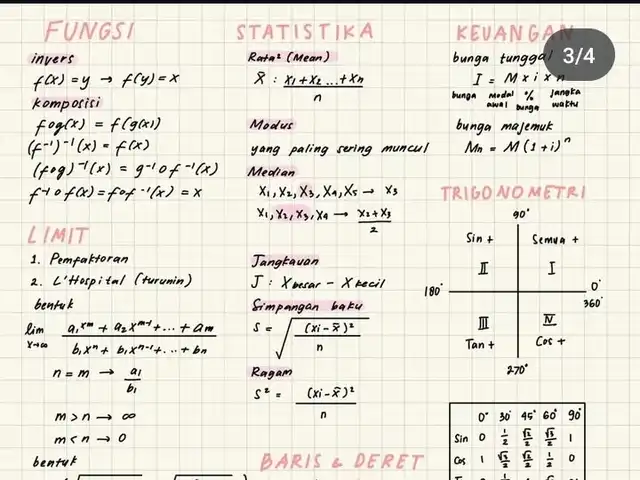 FUNGSI
invers
f(x) = y → f(y) = x
komposisi
fog(x) = f(g(x))
(f⁻¹)⁻¹(x) = f(x)
(fog)⁻¹(x) = g⁻¹of⁻¹(x)
f⁻¹of(x) = fof⁻¹(x) = x
LIMIT
1. Pemfaktoran
2. L'Hospital (turunin)
bentuk
lim x→∞ (a₁xᵐ + a₂xᵐ⁻¹ + ... + aₘ) / (b₁xⁿ + b₁xⁿ⁻¹ + ... + bₙ)
n = m → a₁/b₁
m > n → ∞
m < n → 0
bentuk
STATISTIKA
Rata² (Mean)
x̄ : (x₁ + x₂ ... + xn) / n
Modus
yang paling sering muncul
Median
x₁, x₂, x₃, x₄, x₅ → x₃
x₁, x₂, x₃, x₄ → (x₂+x₃) / 2
Jangkauan
J : x besar − x kecil
Simpangan baku
S = √((xi − x̄)² / n)
Ragam
S² = (xi − x̄)² / n
BARIS & DERET
KEUANGAN
3/4
bunga tunggal
I = M x i x n
bunga modal awal % bunga jangka waktu
bunga majemuk
Mn = M (1 + i)ⁿ
TRIGONOMETRI
90°
Sin + Semua +
II I
180° 0°
360°
III IV
Tan + Cos +
270°
0° 30° 45° 60° 90°
Sin 0 1/2 √2/2 √3/2 1
Cos 1 √3/2 √2/2 1/2 0